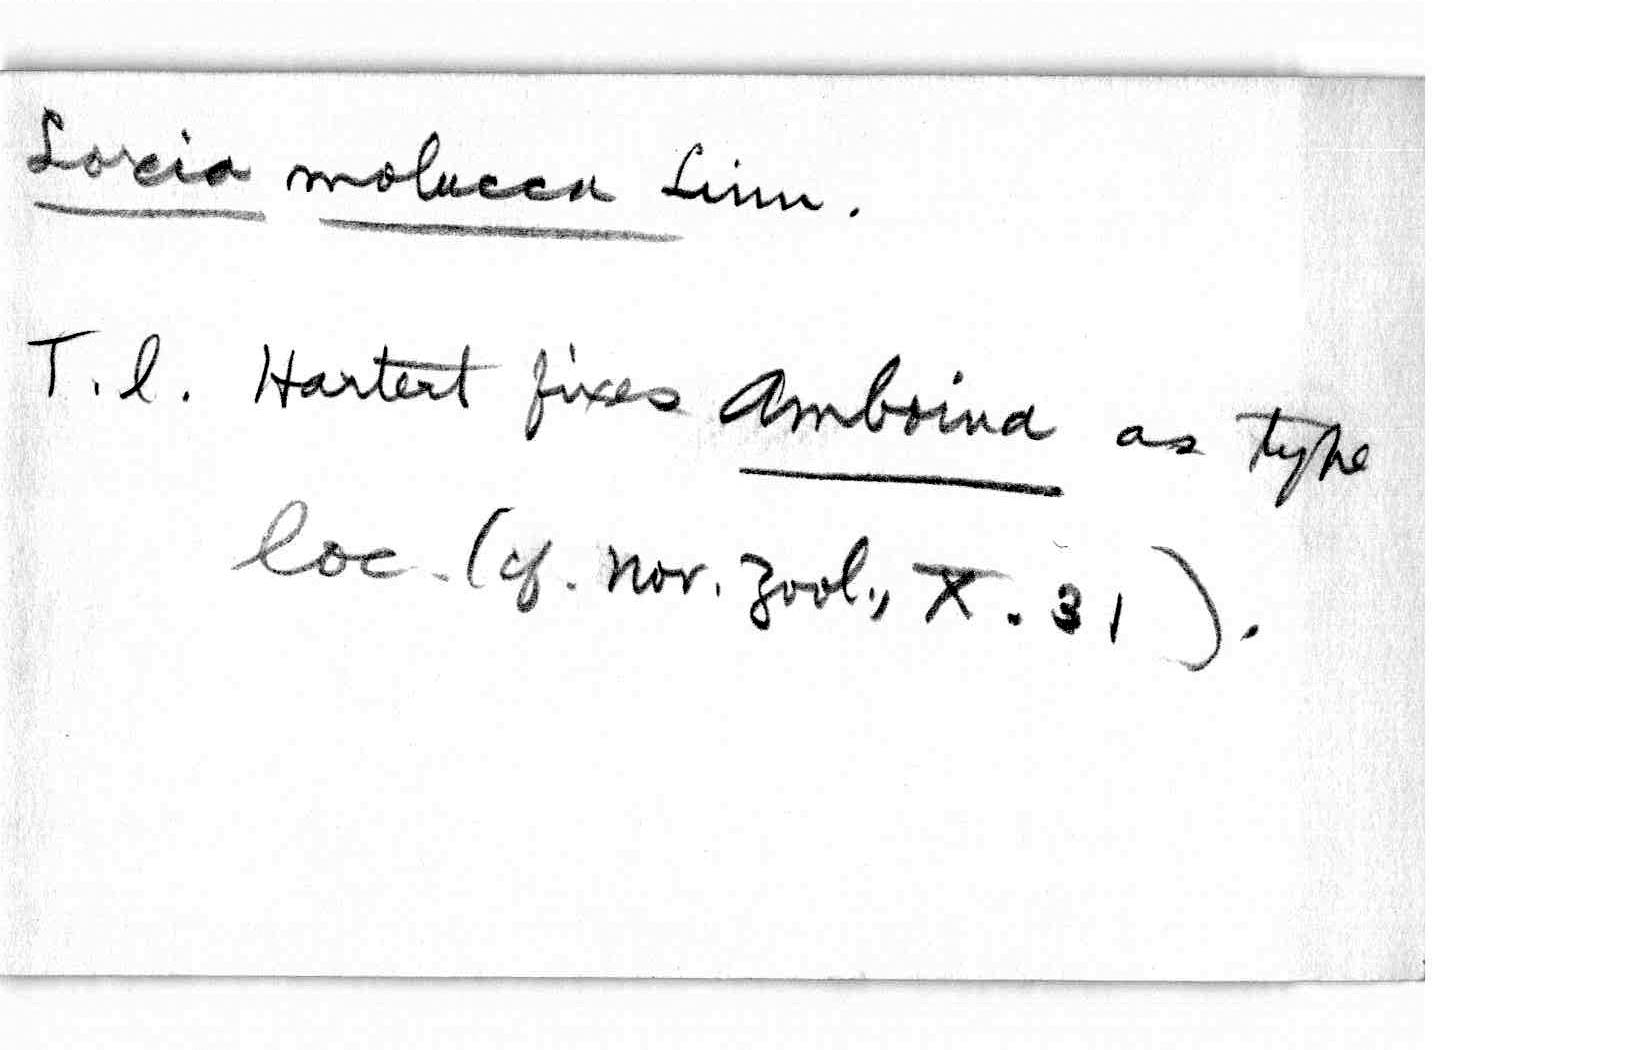 Loxia molucca Linn.
T.l. Hartert fixes Amboina as type
loc. (cf. Nov. Zool., X. 31).